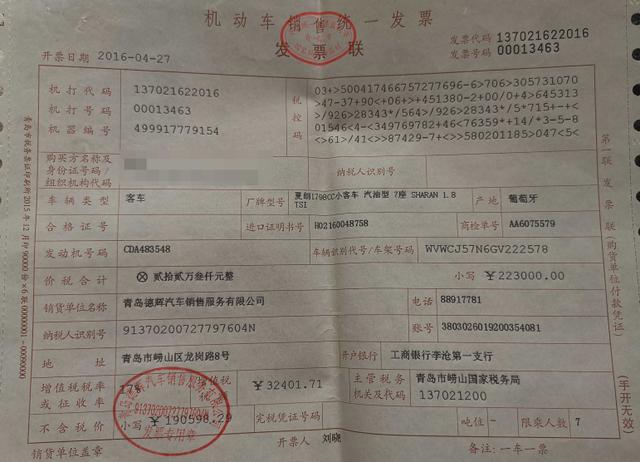 机动车销售统一发票
发票联
发票代码 137021622016
发票号码 00013463
开票日期 2016-04-27
机打代码 137021622016
机打号码 00013463
机器编号 499917779154
税控码
03+>500417466757277696-6>706>305731070
>47-37+90<+06+>+451380-2+00/0+4>645313
>/926>28343*/564>/926>28343*/5*715+-+<
01546<4-<349769782+46<76359*+14/*3-5-8
<>61>/41<>>87429-7+<>>580201185>047<5<
购买方名称及
身份证号码/
组织机构代码
纳税人识别号
车辆类型 客车 厂牌型号 夏朗1798CC小客车 汽油型 7座 SHARAN 1.8 TSI 产地 葡萄牙
合格证号 进口证明书号 H02160048758 商检单号 AA6075579
发动机号码 CDA483548 车辆识别代号/车架号码 WVWCJ57N6GV222578
价税合计 ⊗ 贰拾贰万叁仟元整 小写 ￥223000.00
销货单位名称 青岛德辉汽车销售服务有限公司 电话 88917781
纳税人识别号 91370200727797604N 账号 3803026019200354081
地址 青岛市崂山区龙岗路8号 开户银行 工商银行李沧第一支行
增值税税率
或征收率 17% 增值税 ￥32401.71 主管税务
机关及代码 青岛市崂山国家税务局
137021200
不含税价 小写 ￥190598.29 完税凭证号码 吨位 - 限乘人数 7
销货单位盖章 开票人 刘晓 备注：一车一票
91370200727797604N
发票专用章
第一联 发票联（购货单位付款凭证）
（手开无效）
青岛市税务票证印刷所2015年12月印90000份×6联00000001-00090000